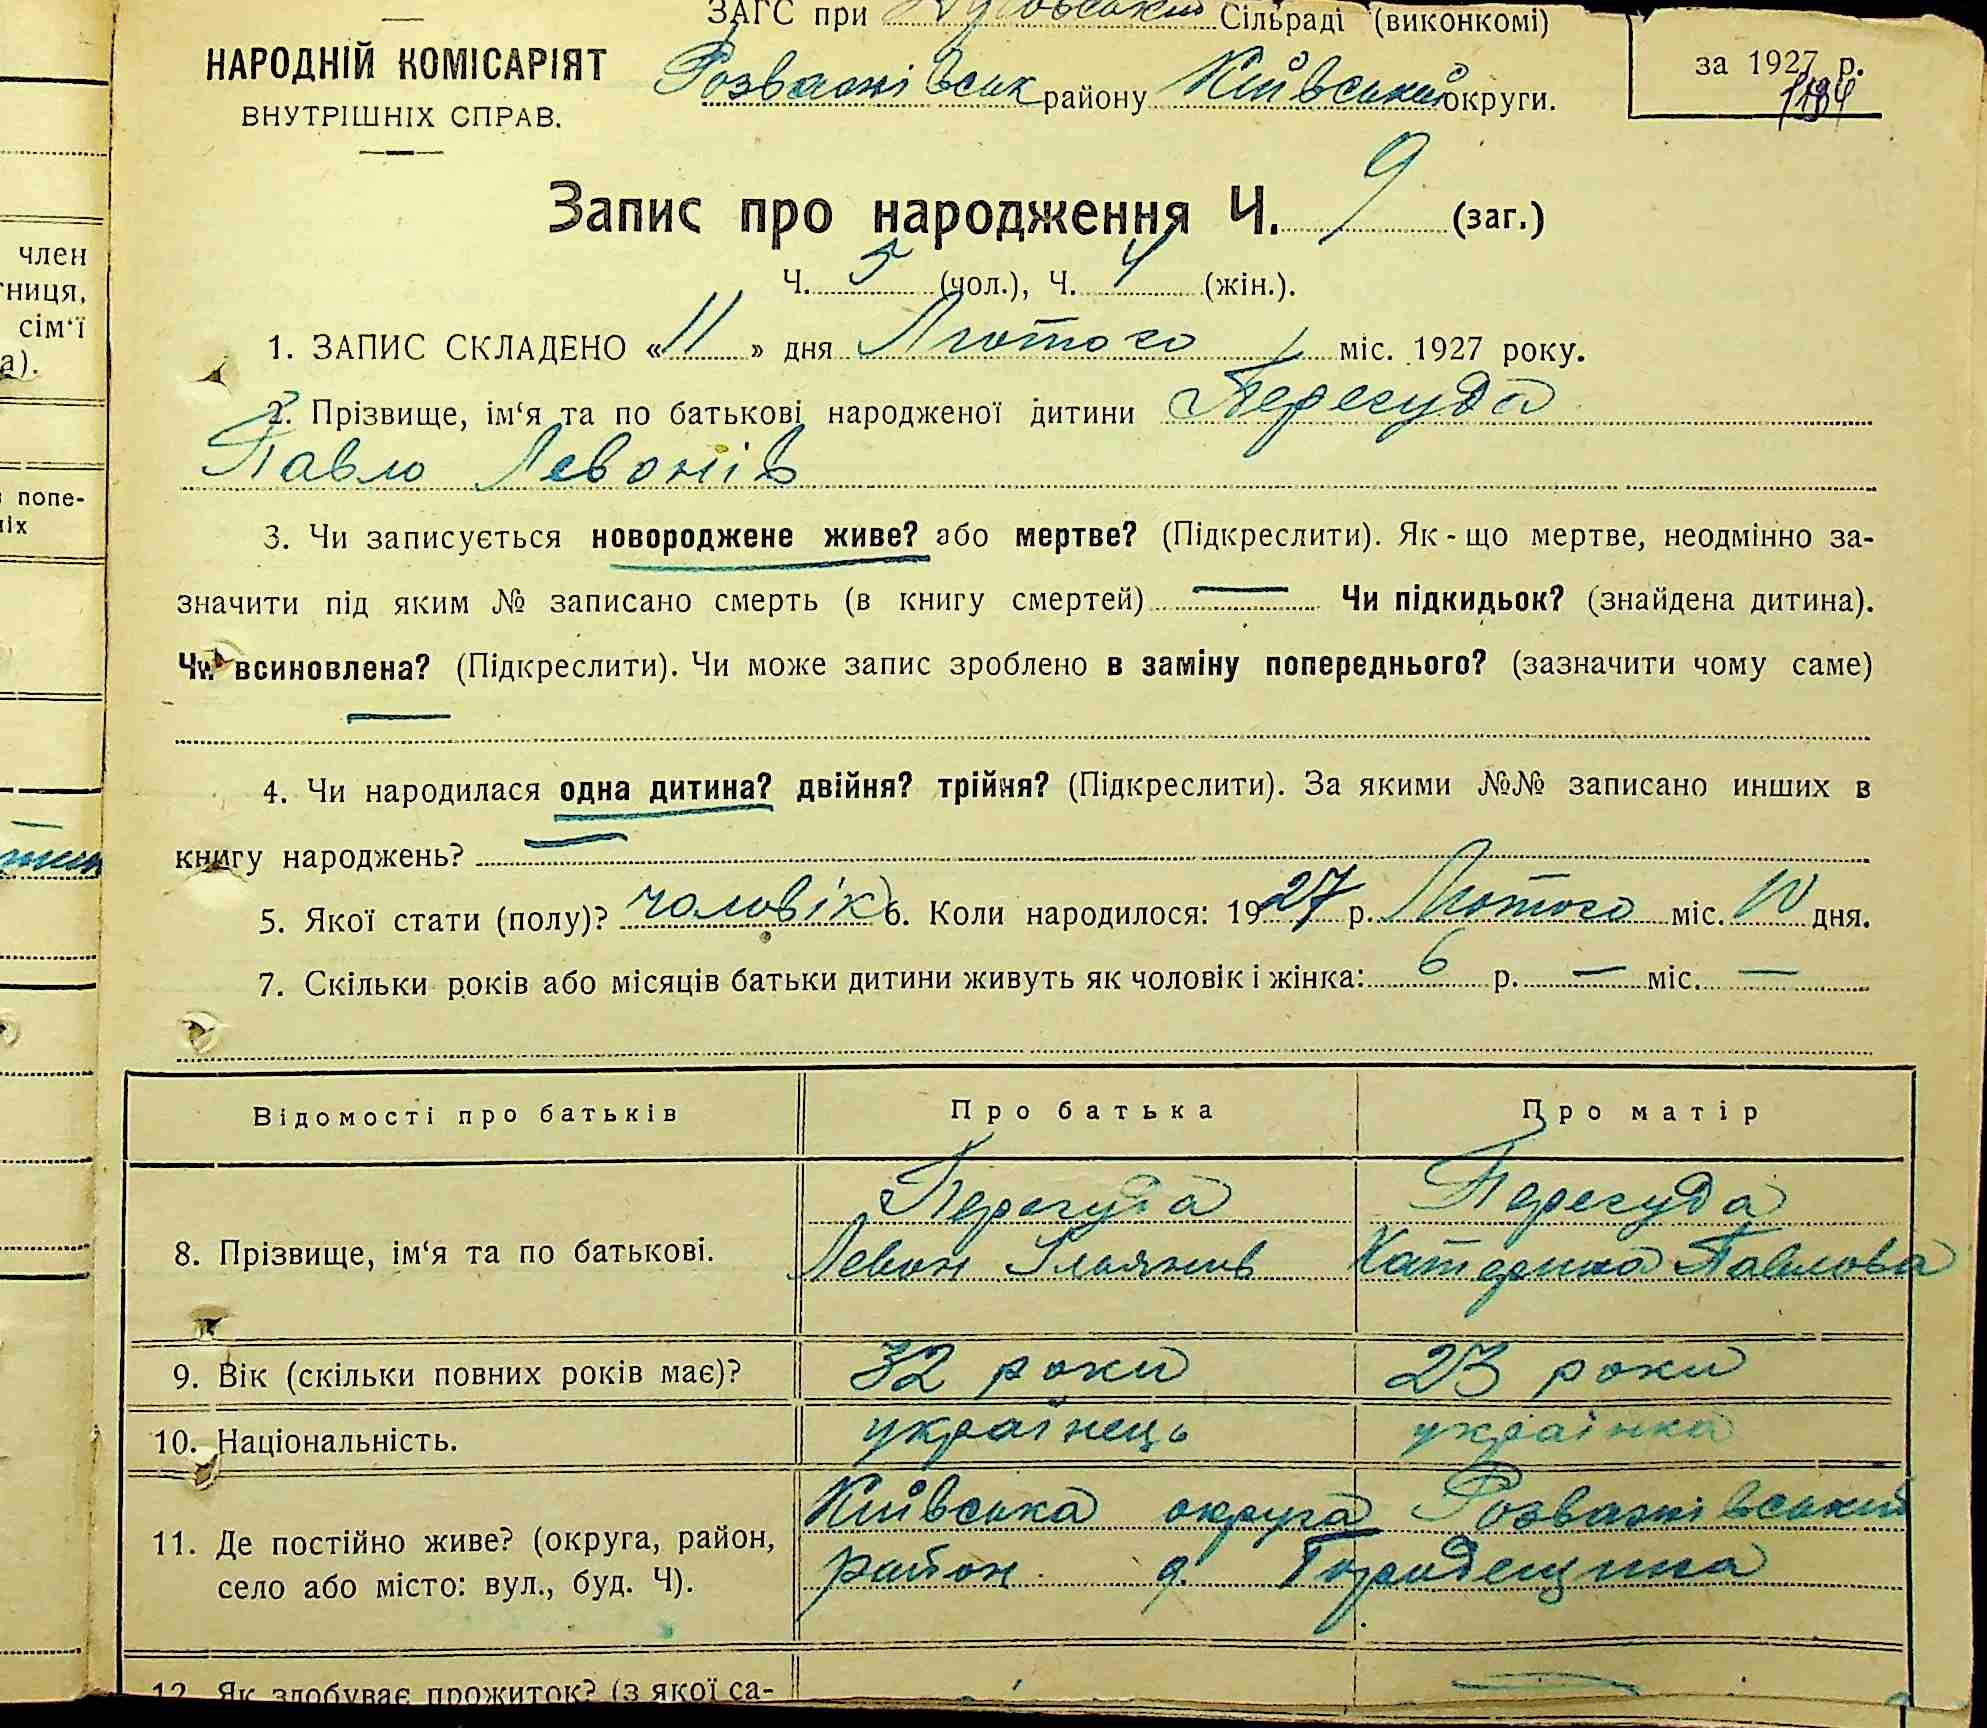 ЗАГС при Сільраді (виконкомі)
НАРОДНІЙ КОМІСАРІЯТ
ВНУТРІШНІХ СПРАВ.
Розважівськ району Київської округи.
за 1927 р.
Запис про народження Ч. 9 (заг.)
Ч. 5 (чол.), Ч. 4 (жін.).
1. ЗАПИС СКЛАДЕНО «11» дня Лютого міс. 1927 року.
2. Прізвище, ім‘я та по батькові народженої дитини Пересуда
Павло Левонів
3. Чи записується новороджене живе? або мертве? (Підкреслити). Як-що мертве, неодмінно за-
значити під яким № записано смерть (в книгу смертей) — Чи підкидьок? (знайдена дитина).
Чи всиновлена? (Підкреслити). Чи може запис зроблено в заміну попереднього? (зазначити чому саме)
—
4. Чи народилася одна дитина? двійня? трійня? (Підкреслити). За якими №№ записано инших в
книгу народжень? —
5. Якої стати (полу)? чоловік 6. Коли народилося: 1927 р. Лютого міс. 10 дня.
7. Скільки років або місяців батьки дитини живуть як чоловік і жінка: 6 р. — міс. —
Відомості про батьків Про батька Про матір
8. Прізвище, ім‘я та по батькові. Пересуда Пересуда
Левон Катерина Павлова
9. Вік (скільки повних років має)? 32 роки 23 роки
10. Національність. українець українка
11. Де постійно живе? (округа, район, Київська округа Розважівський
село або місто: вул., буд. Ч). район Городещина
12. Як здобуває прожиток? (з якої са-
член
тниця,
сім‘ї
а).
попе-
ніх